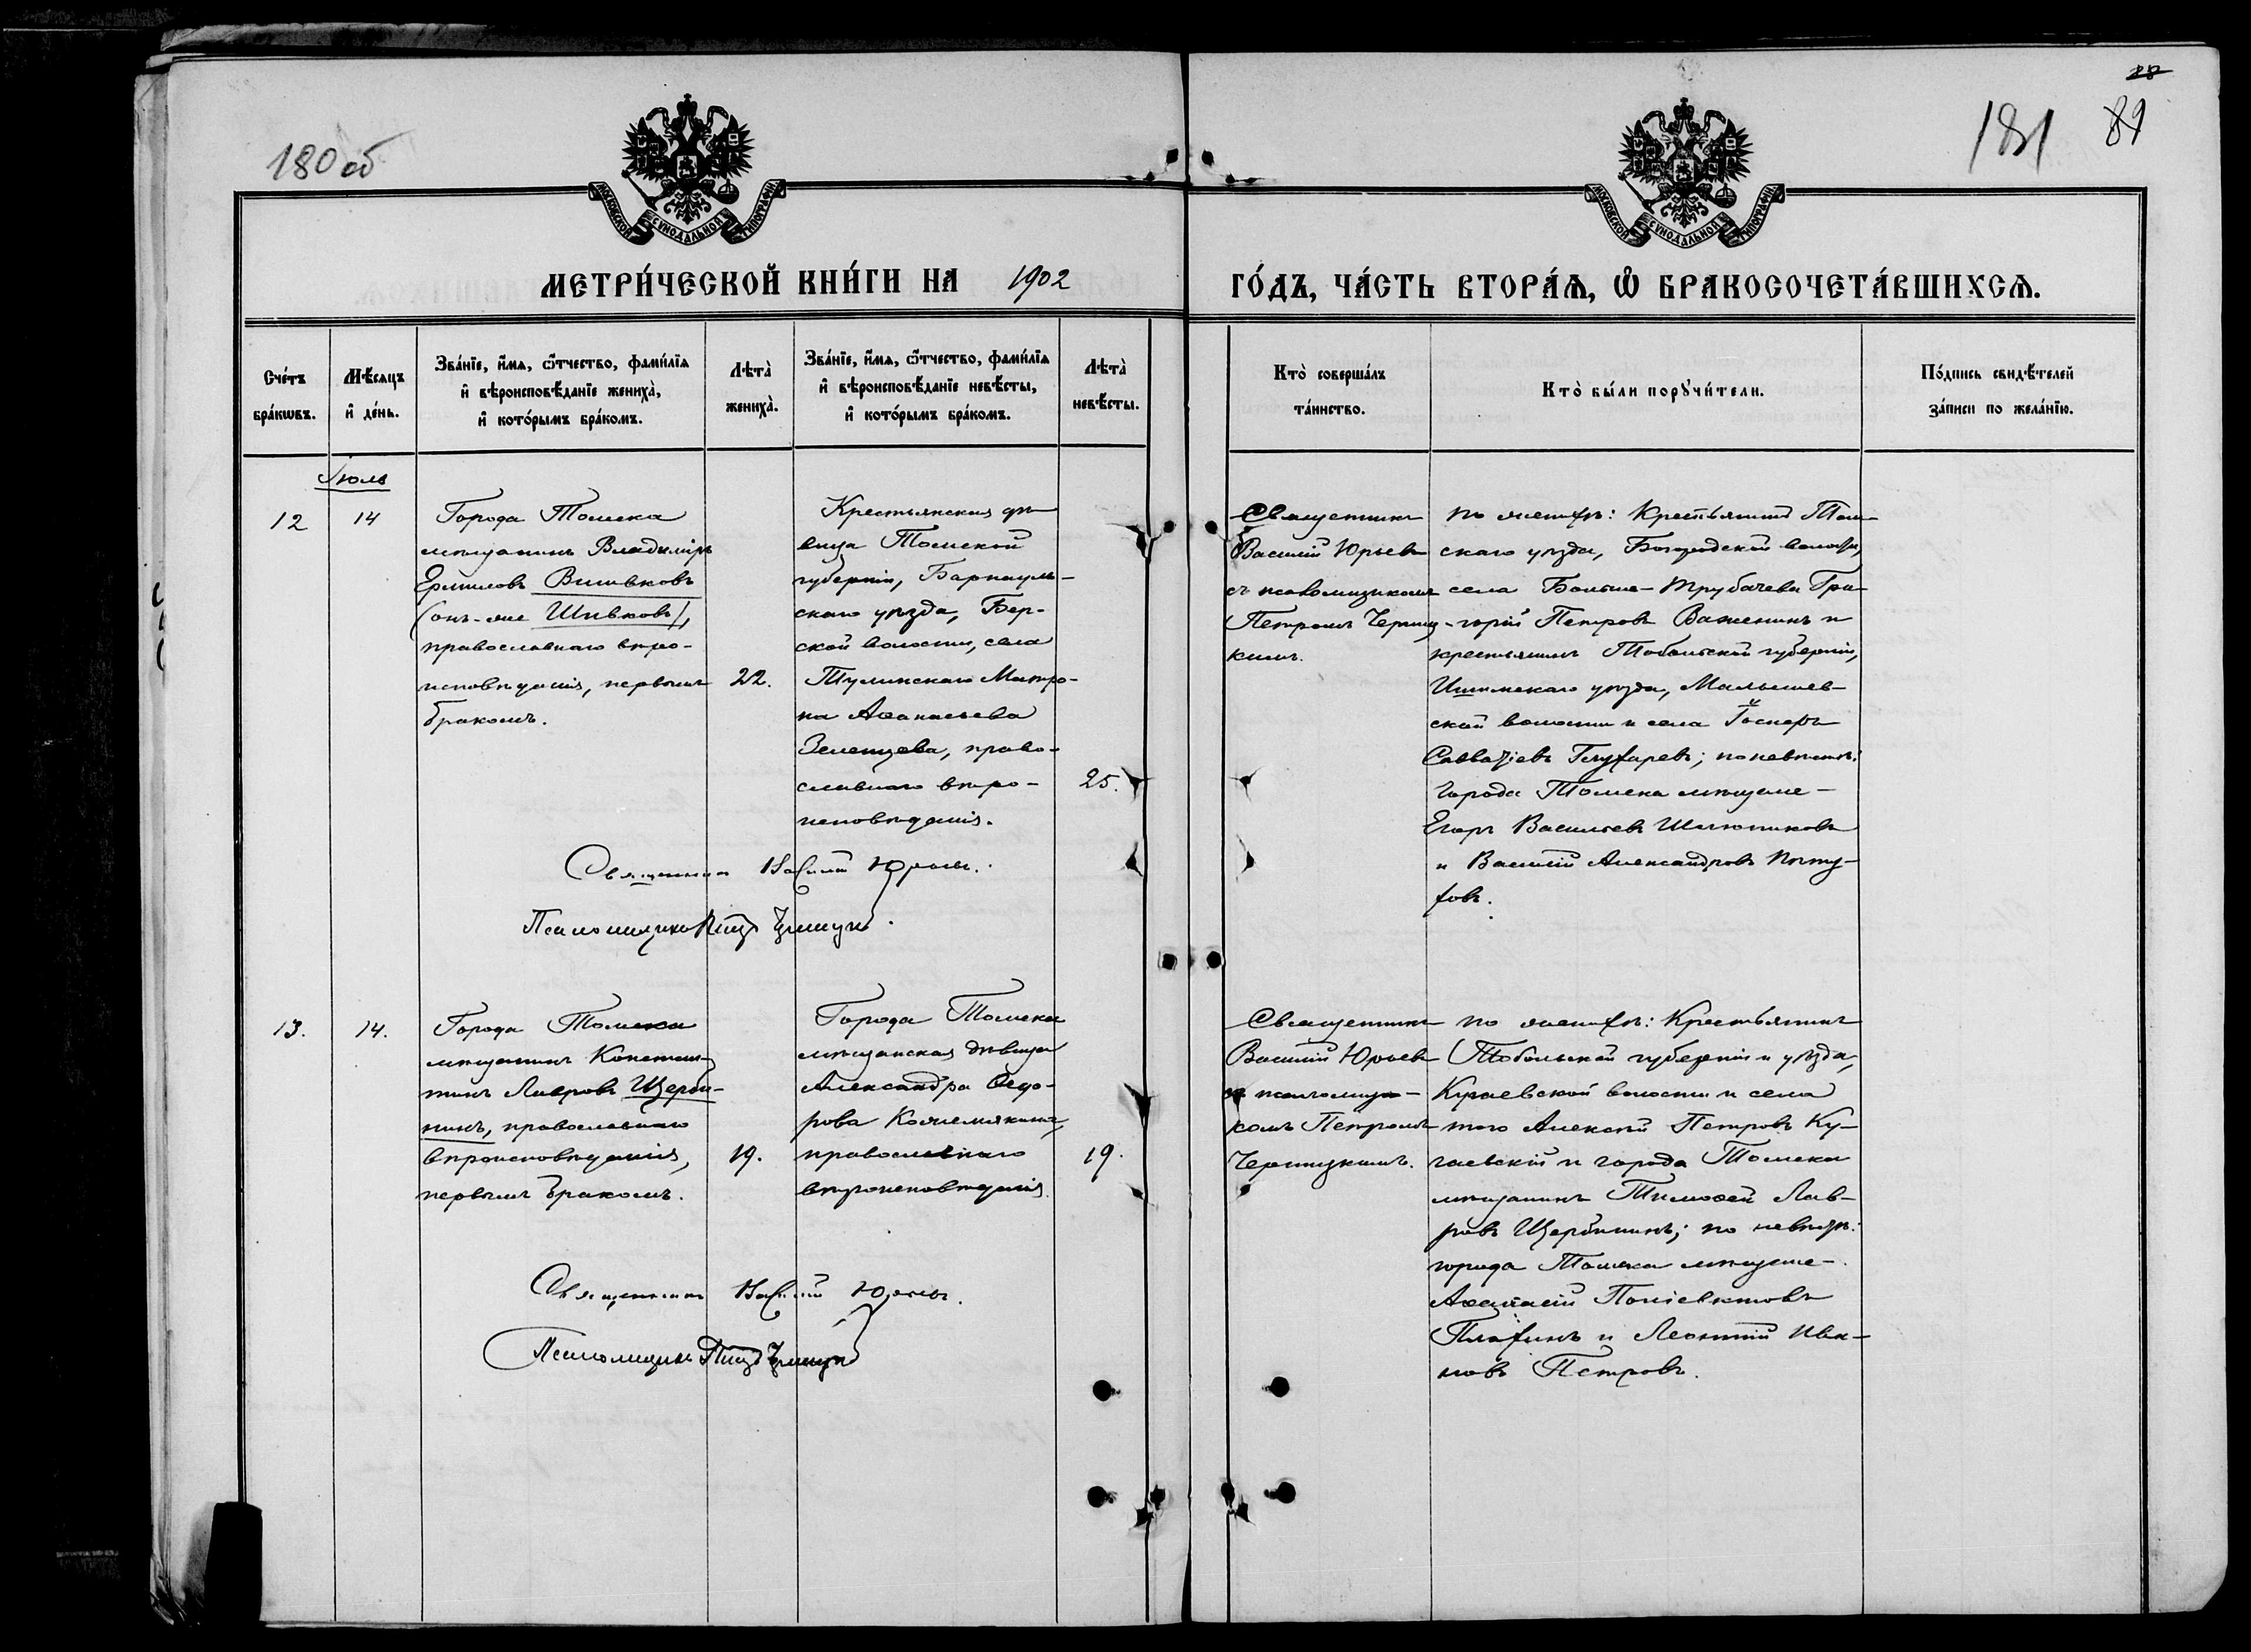 180 об
181
89
28
МОСКОВСКОЙ СѴНОДАЛЬНОЙ ТИПОГРАФІИ
МОСКОВСКОЙ СѴНОДАЛЬНОЙ ТИПОГРАФІИ
МЕТРИ́ЧЕСКОЙ КНИ́ГИ НА 1902
ГО́ДЪ, ЧА́СТЬ ВТОРА́Ѧ, Ѡ҆ БРАКОСОЧЕТА́ВШИХСѦ.
Сче́тъ
бра́кѡвъ.
Мѣ́сѧцъ
и҆ де́нь.
Зва́нїе, и҆́мѧ, ѻ҆́тчество, фами́лїѧ
и҆ вѣроисповѣ́данїе жениха̀,
и҆ кото́рымъ бра́комъ.
Лѣта̀
жениха̀.
Зва́нїе, и҆́мѧ, ѻ҆́тчество, фами́лїѧ
и҆ вѣроисповѣ́данїе невѣ́сты,
и҆ кото́рымъ бра́комъ.
Лѣта̀
невѣ́сты.
Кто̀ соверша́лъ
та́инство.
Кто̀ бы́ли порꙋчи́тели.
По́дпись свидѣ́телей
за́писи по жела́нїю.
Іюль
12
14
Города Томска
мѣщанинъ Владиміръ
Ермиловъ Вшивковъ
(онъ-же Шивковъ),
православнаго вѣро-
исповѣданія, первымъ
бракомъ.
22.
Крестьянская дѣ-
вица Томской
губерніи, Барнауль-
скаго уѣзда, Бер-
ской волости, села
Тулинскаго Матро-
на Аѳанасьева
Зеленцева, право-
славнаго вѣро-
исповѣданія.
25.
Священникъ
Василій Юрьевъ
съ псаломщикомъ
Петромъ
по женихѣ: Крестьянинъ Том-
скаго уѣзда, Богородской волости,
села Больше-Трубачева Гри-
горій Петровъ Важенинъ и
крестьянинъ Тобольской губерніи,
Ишимскаго уѣзда, Малышев-
ской волости и села
Савватіевъ Глухаревъ; по невѣстѣ:
города Томска мѣщане-
Егоръ Васильевъ
и Василій Александровъ
Священникъ Василій Юрьевъ.
Псаломщикъ Петръ
13.
14.
Города Томска
мѣщанинъ Констан-
тинъ Лавровъ Щерби-
нинъ, православнаго
вѣроисповѣданія,
первымъ бракомъ.
19.
Города Томска
мѣщанская дѣвица
Александра Ѳедо-
рова Кожемякина,
православнаго
вѣроисповѣданія.
19.
Священникъ
Василій Юрьевъ
съ псаломщи-
комъ Петромъ
по женихѣ: Крестьянинъ
Тобольской губерніи и уѣзда,
волости и села
того Алексѣй Петровъ
и города Томска
мѣщанинъ Тимоѳей Лав-
ровъ Щербининъ; по невѣстѣ:
города Томска мѣщане-
Аѳанасій Поліевктовъ
и Леонтій Ива-
новъ Петровъ.
Священникъ Василій Юрьевъ.
Псаломщикъ Петръ